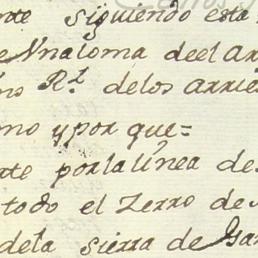 nte siguiendo esta
e Vna loma de el Ar
no Rl. de los Arrie
mo y por que=
rte por la línea de
todo el Zerro de
de la Sierra de Gar